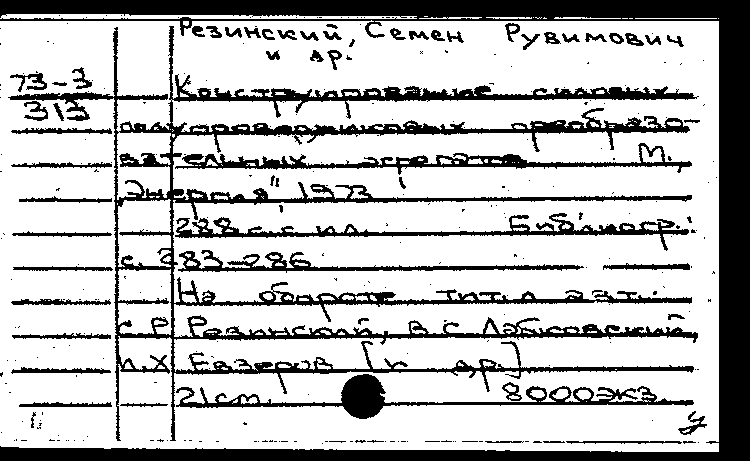 Резинский, Семен Рувимович
и др.
73-3
313
Конструирование силовых
полупроводниковых преобразо-
вательных агрегатов М.,
"Энергия" 1973
288 с. с ил. Библиогр.:
с. 283-286
На обороте тит. л авт.:
С.Р Резинский, В.С Лабковский,
И.Х Евзеров [и др.]
21 см. 8000 экз.